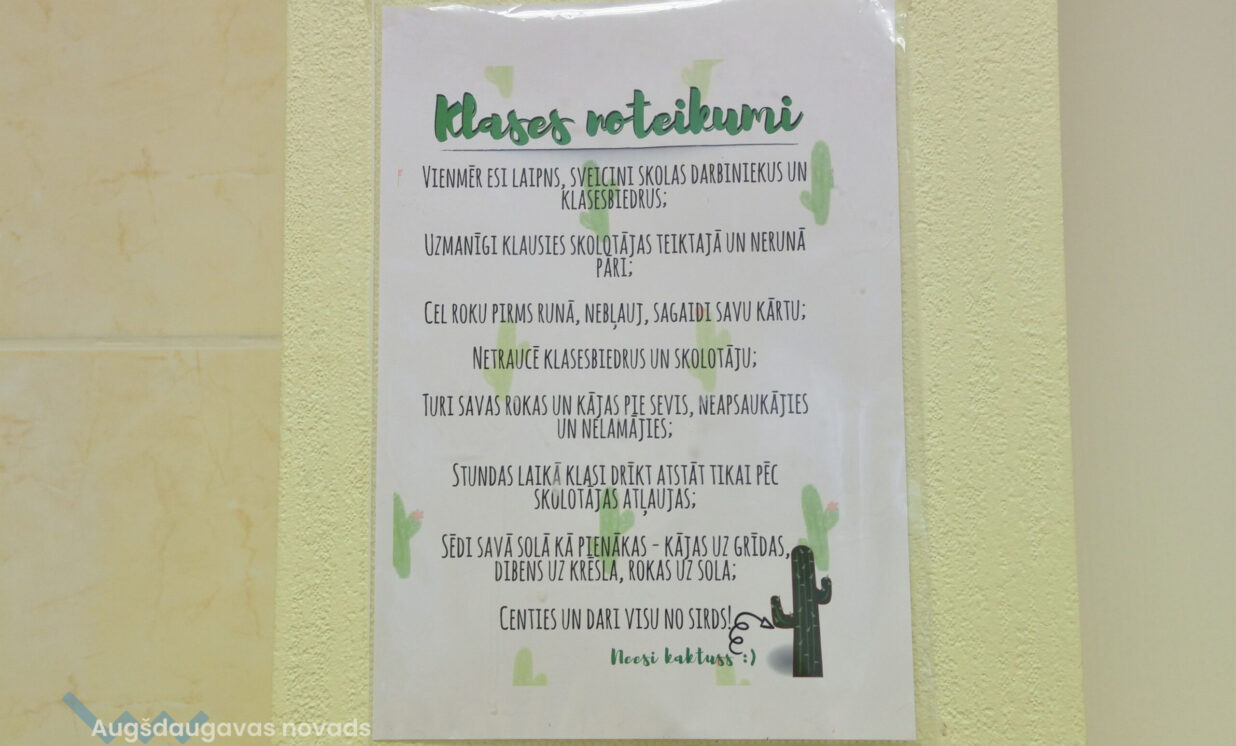 Klases noteikumi
VIENMĒR ESI LAIPNS, SVEICINI SKOLAS DARBINIEKUS UN
KLASESBIEDRUS;
UZMANĪGI KLAUSIES SKOLOTĀJAS TEIKTAJĀ UN NERUNĀ
PĀRI;
CEL ROKU PIRMS RUNĀ, NEBĻAUJ, SAGAIDI SAVU KĀRTU;
NETRAUCĒ KLASESBIEDRUS UN SKOLOTĀJU;
TURI SAVAS ROKAS UN KĀJAS PIE SEVIS, NEAPSAUKĀJIES
UN NELAMĀJIES;
STUNDAS LAIKĀ KLASI DRĪKT ATSTĀT TIKAI PĒC
SKOLOTĀJAS ATĻAUJAS;
SĒDI SAVĀ SOLĀ KĀ PIENĀKAS - KĀJAS UZ GRĪDAS,
DIBENS UZ KRĒSLA, ROKAS UZ SOLA;
CENTIES UN DARI VISU NO SIRDS!
Neesi kaktuss :)
Augšdaugavas novads